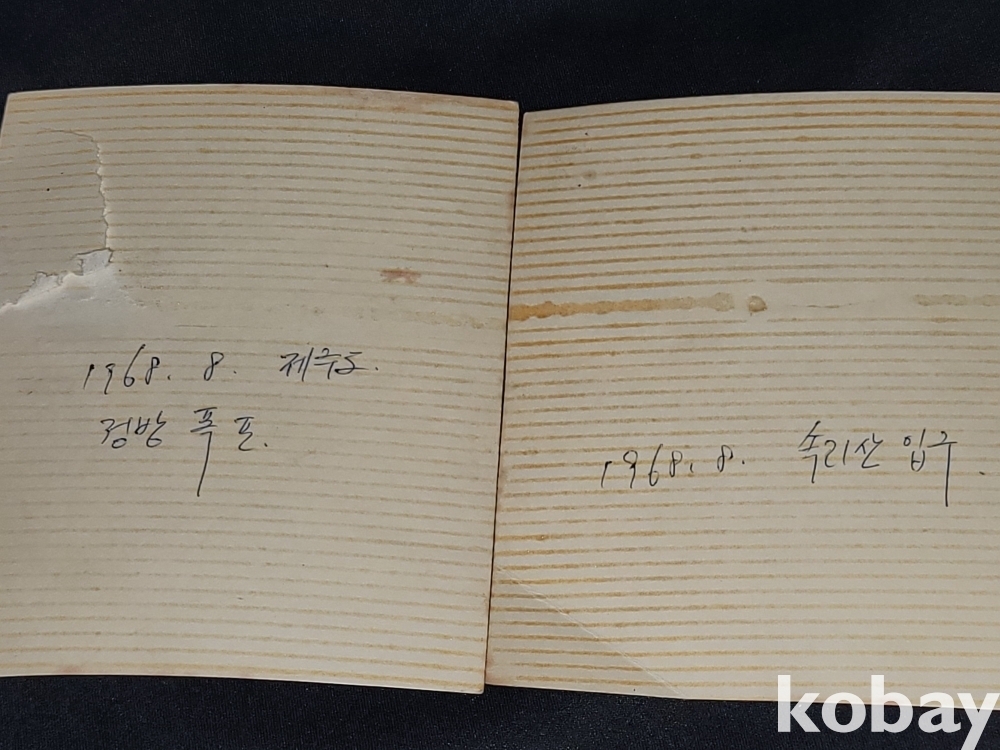 1968. 8. 제주도.
정방 폭포.
1968. 8. 속리산 입구.
kobay